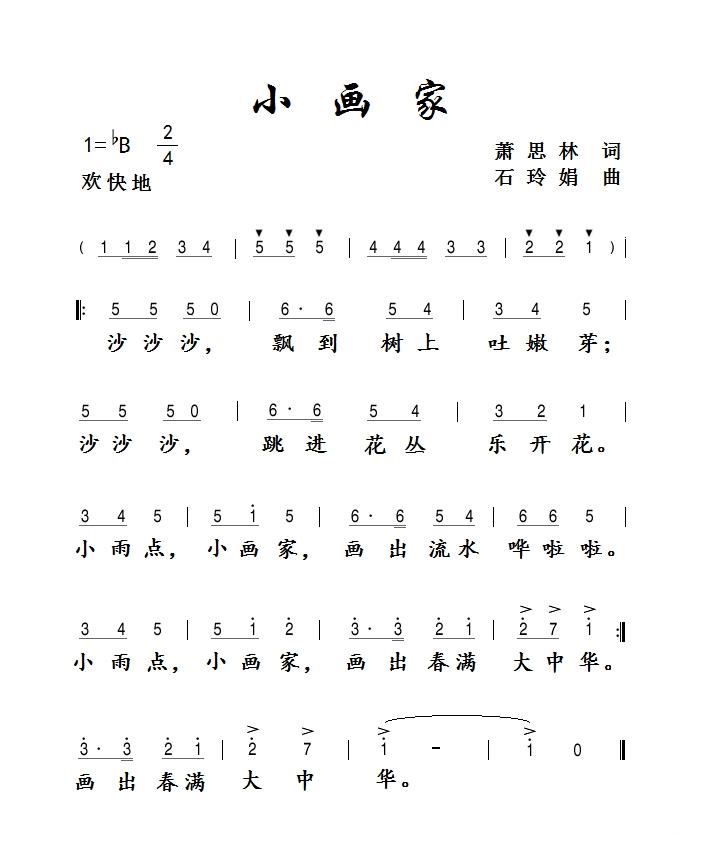 小画家
1=♭B 2/4
萧思林 词
欢快地
石玲娟 曲
( 1 1 2 3 4 | 5 5 5 | 4 4 4 3 3 | 2 2 1 ) |
|: 5 5 5 0 | 6 · 6 5 4 | 3 4 5 |
沙沙沙， 飘到树上 吐嫩芽；
5 5 5 0 | 6 · 6 5 4 | 3 2 1 |
沙沙沙， 跳进花丛 乐开花。
3 4 5 | 5 i 5 | 6 · 6 5 4 | 6 6 5 |
小雨点，小画家，画出流水 哗啦啦。
3 4 5 | 5 i 2̇ | 3̇ · 3̇ 2̇ i | 2̇ 7 i :|
小雨点，小画家，画出春满 大中华。
3̇ · 3̇ 2̇ i | 2̇ 7 | i － | i 0 ‖
画出春满 大中 华。